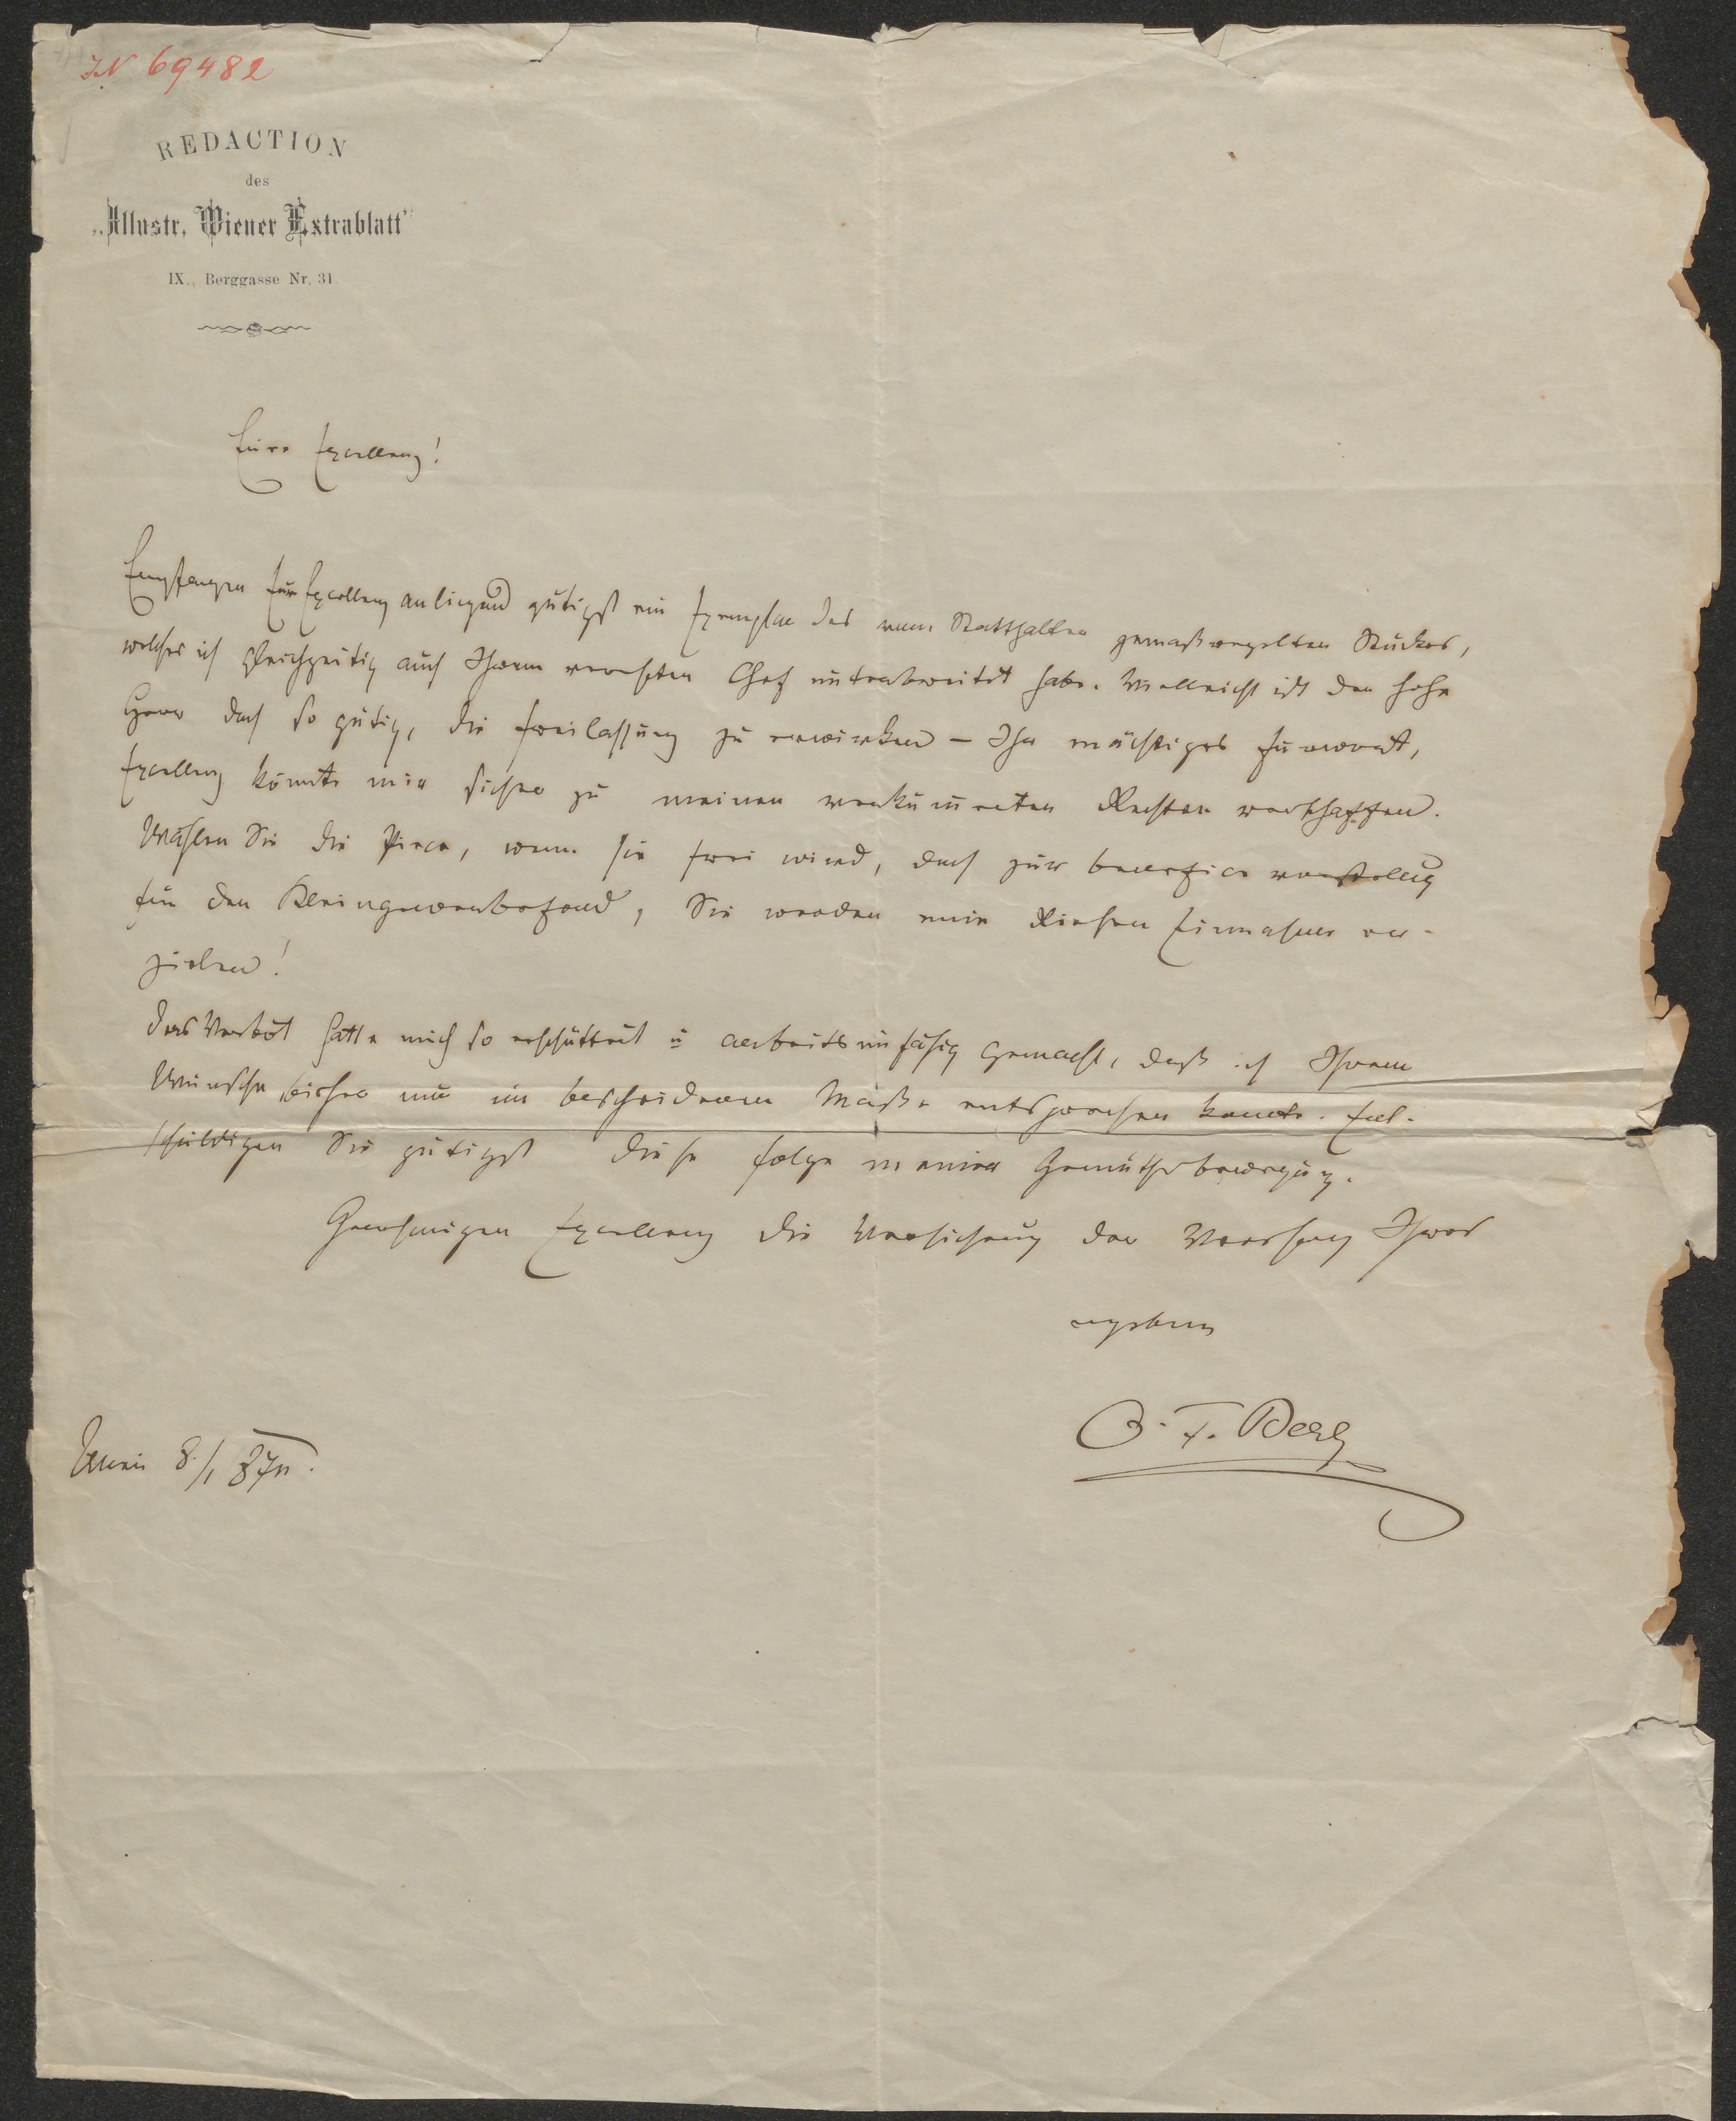 IN 69482
REDACTION
des
„Illustr. Wiener Extrablatt"
IX., Berggasse Nr. 31.
Eure Excellenz!
Empfangen Eur Excellenz anliegend gütigst ein Exemplar des vom Statthalter gemaßregelten Stückes,
welches ich gleichzeitig auch Ihrem verehrten Chef unterbreitet habe. Vielleicht ist der hohe
Herr doch so gütig, die Freilassung zu erwirken – Ihr mächtiges Fürwort,
Excellenz könnte mir sicher zu meinen verkümmerten Rechten verhelfen.
Wählen Sie die Piece, wenn sie frei wird, doch zur Benefice vorstellung
für den Kleingewerbefond, Sie werden eine Riesen Einnahme er-
zielen!
Das Verbot hatte mich so erschüttert u arbeitsunfähig gemacht, daß ich Ihrem
Wunsche bisher nur im bescheidenen Maße entsprechen konnte. Ent-
schuldigen Sie gütigst diese Folge meiner Gemüthsbewegung.
Genehmigen Excellenz die Versicherung der Verehrung Ihres
ergebenen
O. F. Berg
Wien 8./1